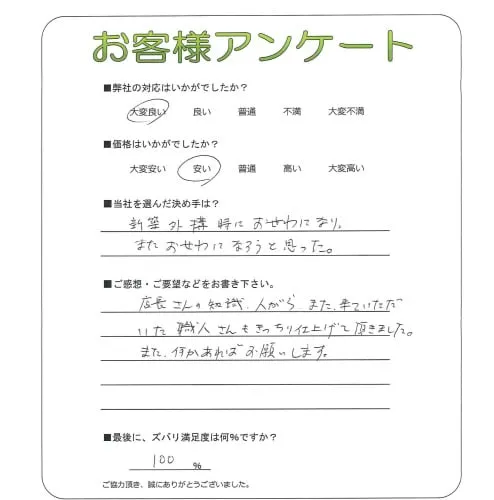 お客様アンケート
■弊社の対応はいかがでしたか？
大変良い 良い 普通 不満 大変不満
■価格はいかがでしたか？
大変安い 安い 普通 高い 大変高い
■当社を選んだ決め手は？
新築外構時におせわになり。
またおせわになろうと思った。
■ご感想・ご要望などをお書き下さい。
店長さんの知識、人がら また、来ていただ
いた職人さんもきっちり仕上げて頂きました。
また、何かあればお願いします。
■最後に、ズバリ満足度は何%ですか？
100 %
ご協力頂き、誠にありがとうございました。